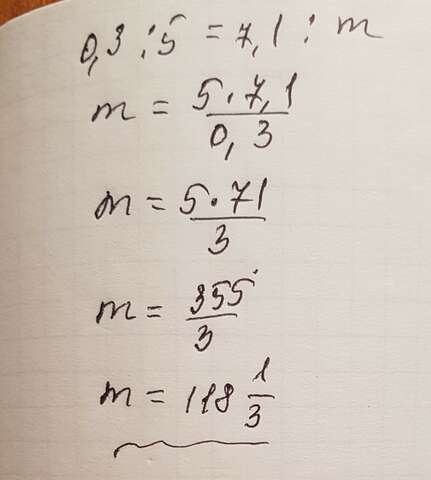 0,3 : 5 = 7,1 : m
m = 5 · 7,1 / 0,3
m = 5 · 71 / 3
m = 355 / 3
m = 118 1/3